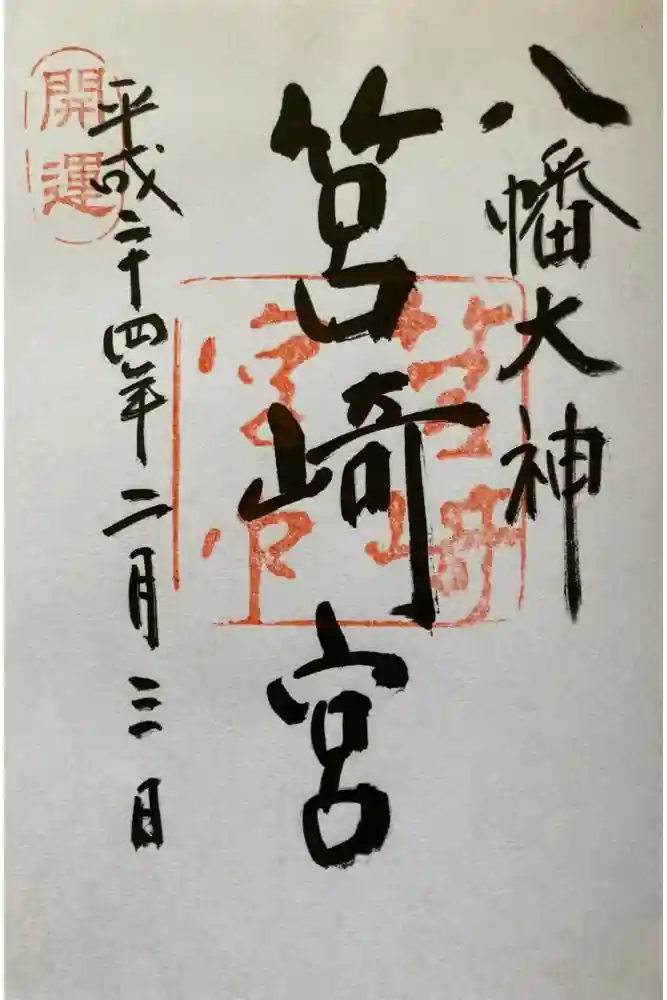 八幡大神
筥崎宮
筥崎宮印
平成二十四年二月三日
開運